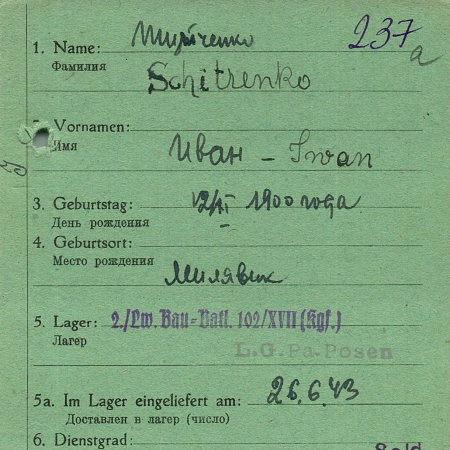 237
a
1. Name:
Фамилия
Schitrenko
2. Vornamen:
Имя
Иван - Iwan
3. Geburtstag: 1900 года
День рождения
4. Geburtsort:
Место рождения
Милявик
5. Lager: 2./Lw. Bau-Batl. 102/XVII (Kgf.)
Лагер
L.G.Pa.Posen
5a. Im Lager eingeliefert am: 26.6.43
Доставлен в лагер (число)
6. Dienstgrad: